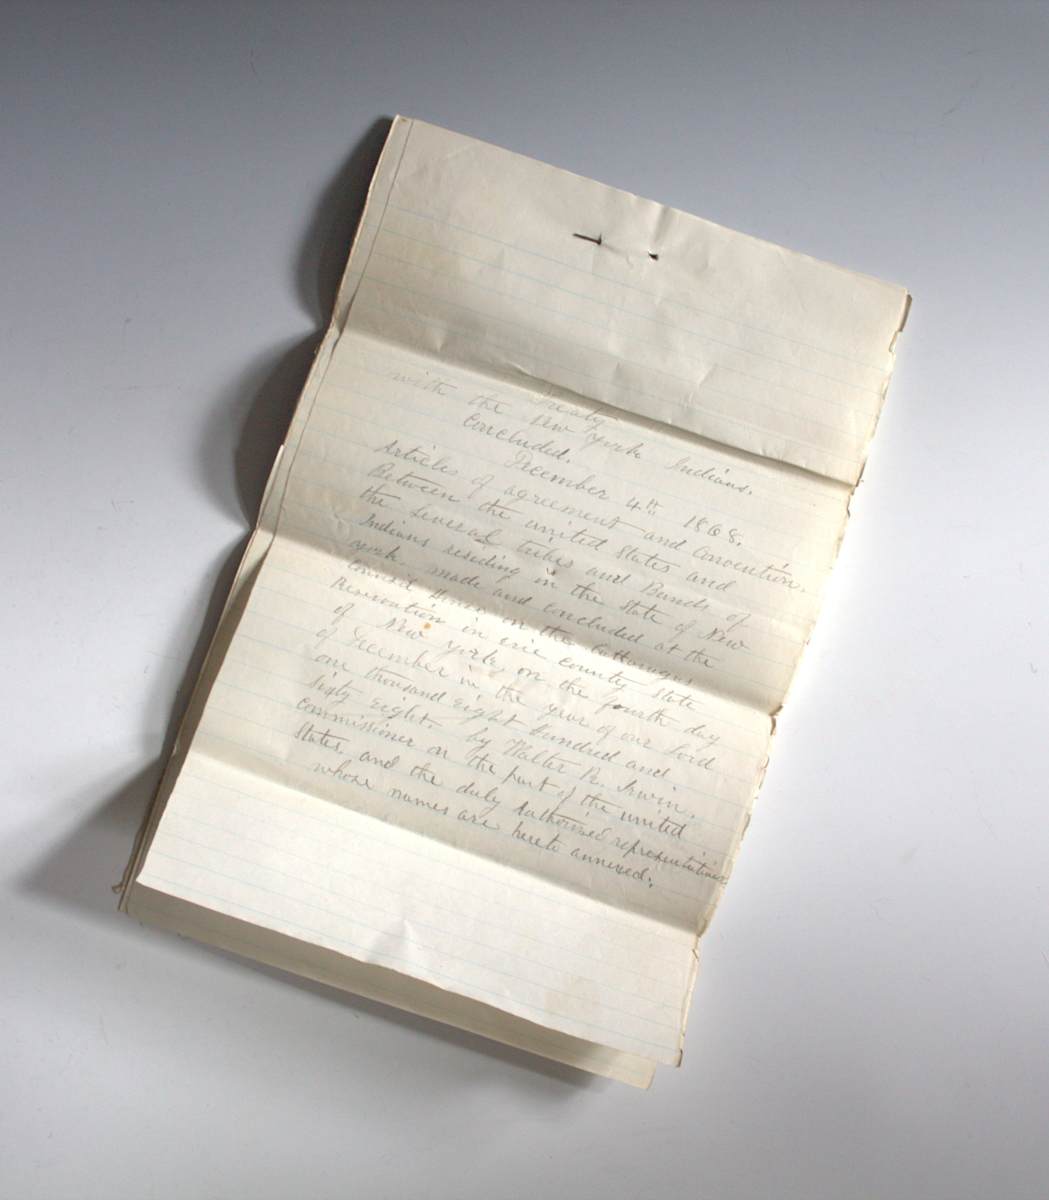 Treaty
with the New York Indians.
Concluded.
December 4th 1868.
Articles of agreement and Convention.
Between the united States and
the several tribes and Bands of
Indians residing in the State of New
york. made and concluded at the
Council House on the Cattaraugus
Reservation in erie County State
of New york, on the fourth day
of December in the year of our Lord
one thousand Eight Hundred and
Sixty Eight. by Walter R. Irwin.
Commissioner on the part of the united
States, and the duly Authorized representatives
whose names are hereto annexed.